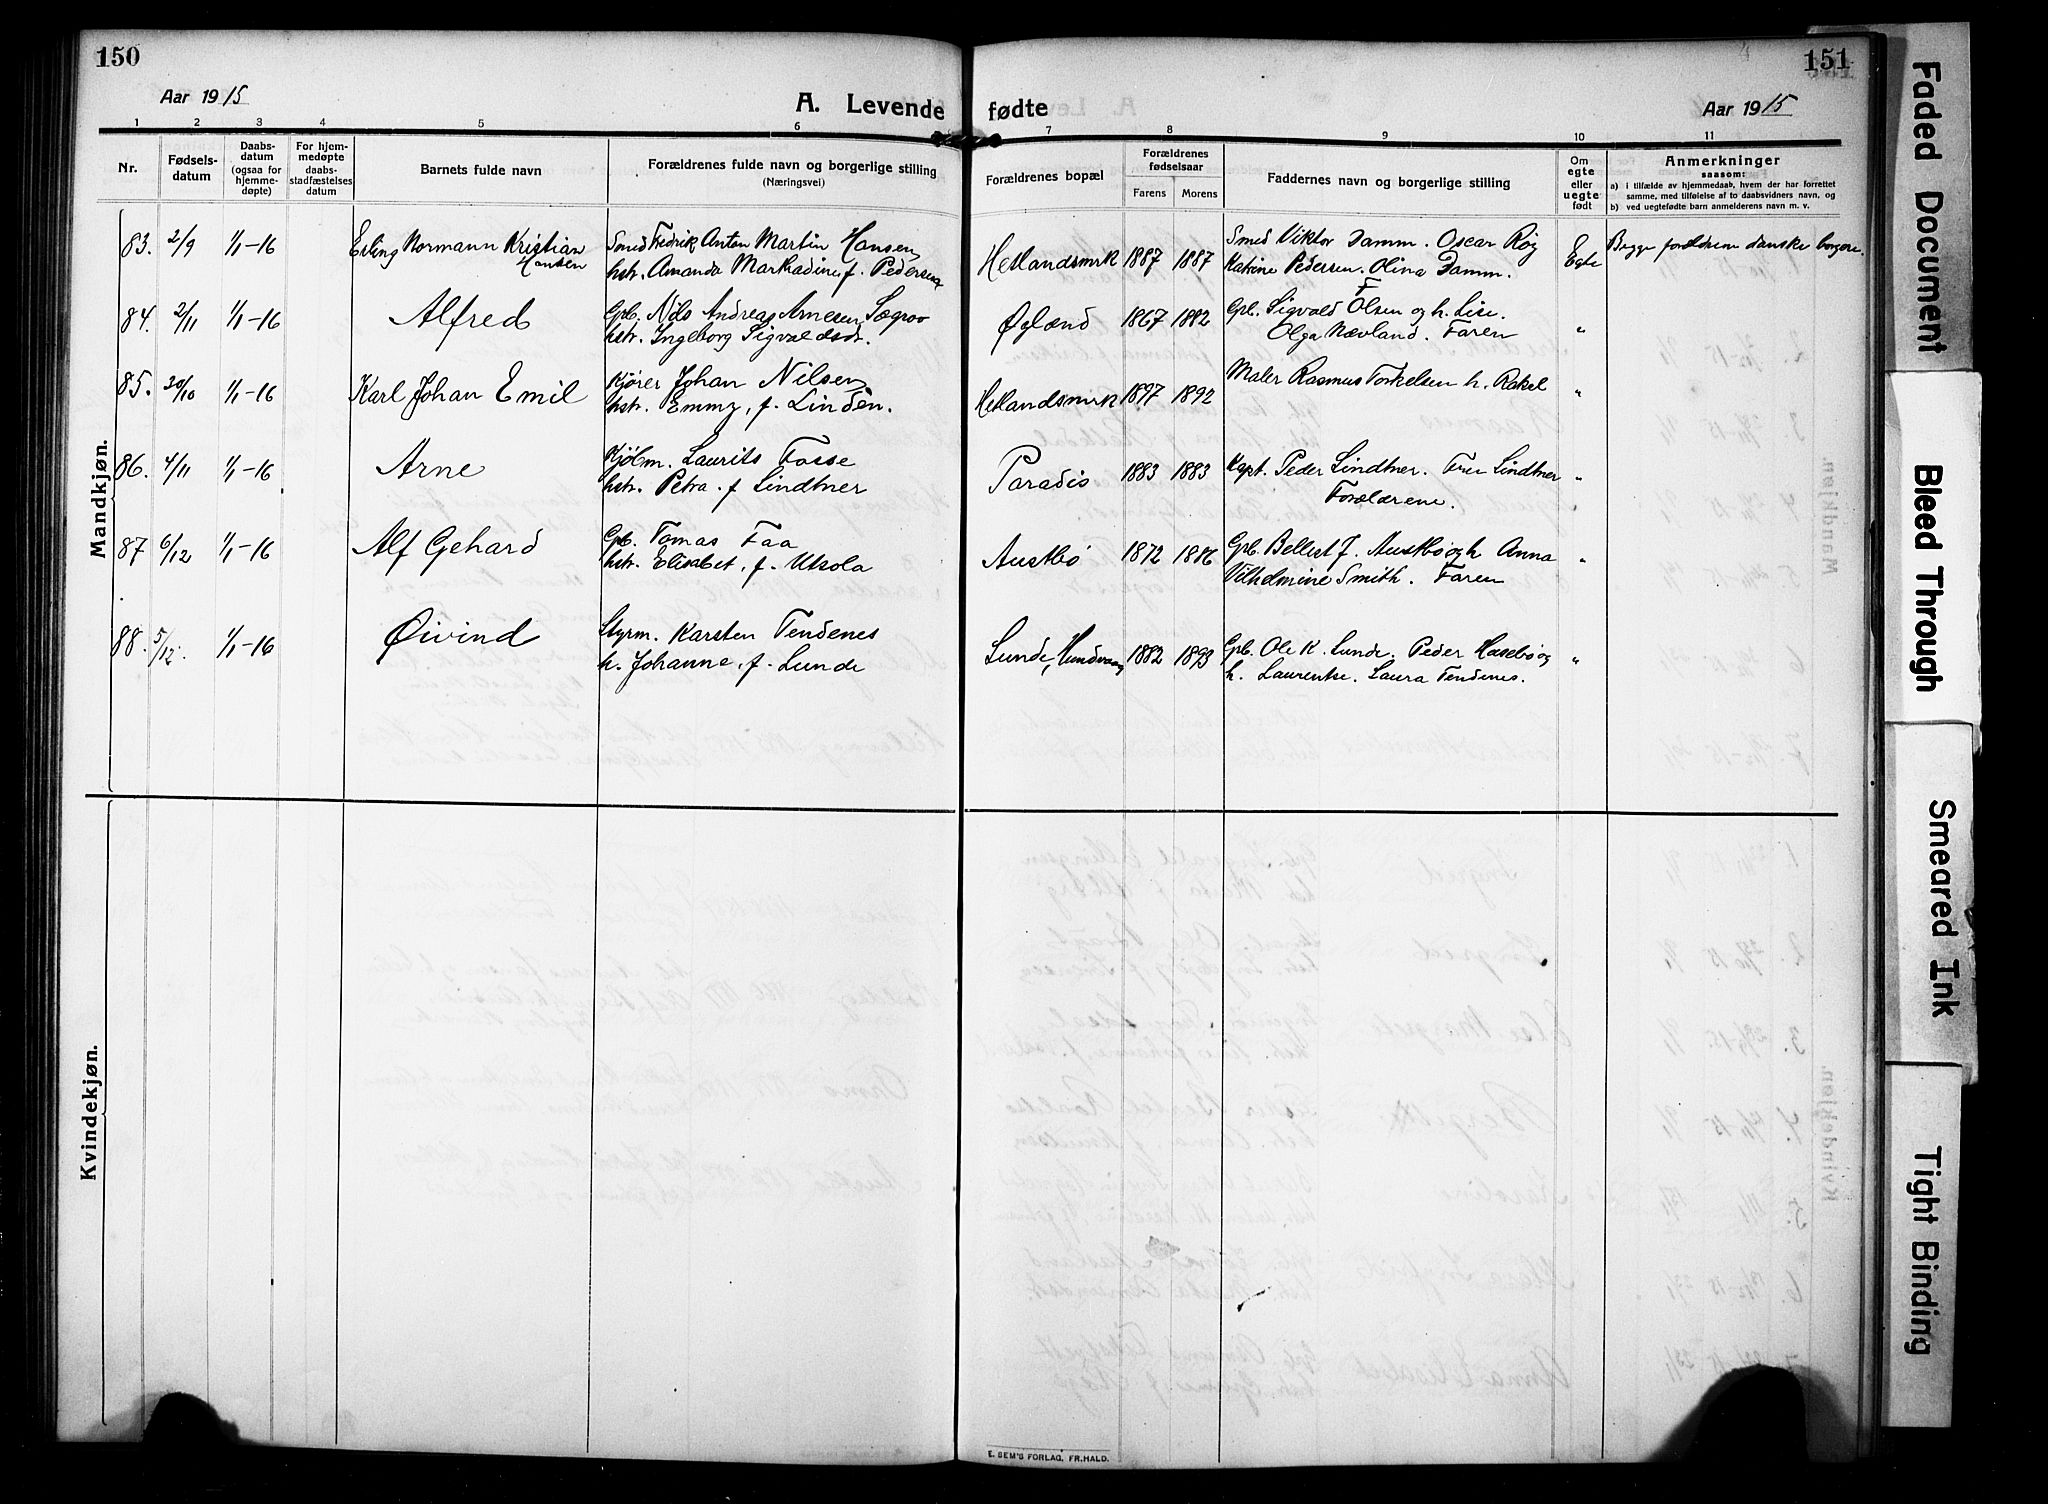 150
151
Aar 1915
A. Levende fødte
Aar 1915
1 2 3 4 5 6 7 8 9 10 11
Nr.
Fødselsdatum
Daabsdatum (ogsaa for hjemmedøpte)
For hjemmedøpte daabsstadfæstelses datum
Barnets fulde navn
Forældrenes fulde navn og borgerlige stilling
(Næringsvei)
Forældrenes bopæl
Forældrenes fødselsaar
Farens Morens
Faddernes navn og borgerlige stilling
Om egte eller uegte født
Anmerkninger
saasom:
a) i tilfælde av hjemmedaab, hvem der har forrettet
samme, med tilføielse af to daabsvidners navn, og
b) ved uegtefødte barn anmelderens navn m. v.
Mandkjøn.
83. 2/9 1/1-16 Erling Normann Kristian Hansen
Smed Fredrik Anton Martin Hansen
hstr. Amanda f. Pedersen
Hetlandsmrk 1887 1887
Smed Viktor Damm. Oscar Røg
Katrine Pedersen. Olina Damm.
Egte
Begge forældrene danske borgere.
84. 2/11 1/1-16 Alfred
Gpb. Nils Andreas Arnesen Sægrov
hstr. Ingeborg Sigvaldsdr.
Øglænd 1867 1882
Gpb. Sigvald F Olsen og h. Lise.
Olga Nævland. Faren
"
85. 30/10 1/1-16 Karl Johan Emil
Kjører Johan Nilsen
hstr. Emmy, f. Linden.
Hetlandsmrk 1897 1892
Maler Rasmus Torkelsen h. Rakel
"
86. 4/11 1/1-16 Arne
Kjøbm. Laurits Fosse
hstr. Petra. f Lindtner
Paradis 1883 1883
Kapt. Peder Lindtner. Fru Lindtner
Forældrene.
"
87 6/12 1/1-16 Alf Gehard
Gpb. Tomas Faa
hstr. Elisabet, f. Utsola
Austbø 1872 1886
Gpb. Bellest J. Austbø og h Anna
Vilhelmine Smith. Faren
"
88. 5/12. 1/1-16 Øivind
Styrm. Karsten Tendenes
h. Johanne, f. Lunde
Lunde, Hundvaag 1882 1893
Gpb. Ole K. Lunde. Peder Husebø og
h. Laurentse. Laura Tendenes.
"
Kvindekjøn.
E. SEM'S FORLAG, FR.HALD.
Faded Document
Bleed Through
Smeared Ink
Tight Binding